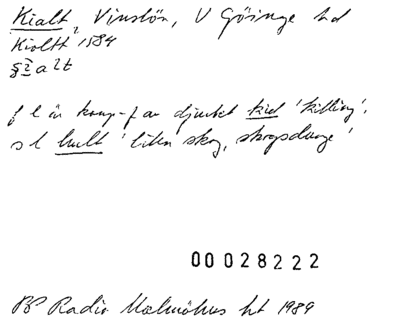 Kialt, Vinslöv, V Göinge hd
Kioltt 1584
f l är komp-f av djurbet kid 'killing'.
s l hult 'liten skog, skogsdunge'
00028222
BP Radio Malmöhus ht 1989